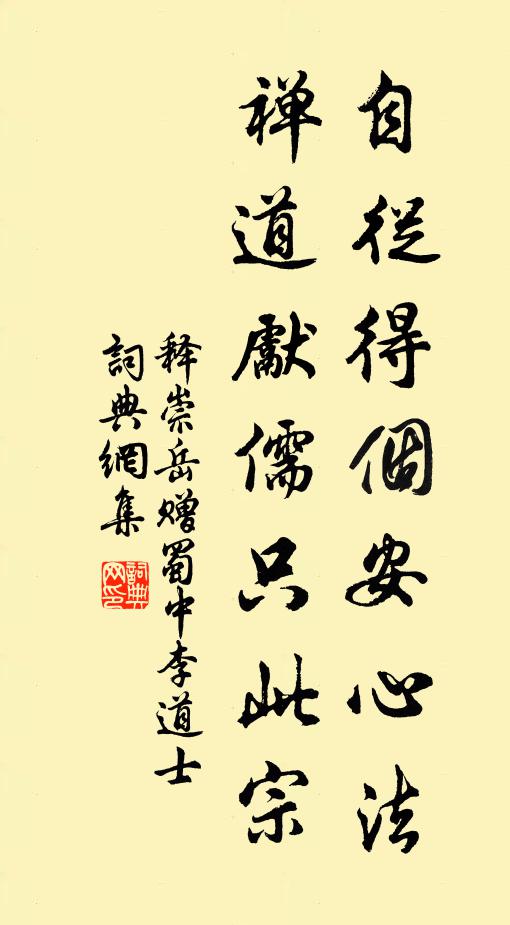 自從得個安心法
禅道獻儒只此宗
释崇岳赠蜀中李道士
詞典網集
詞典网印